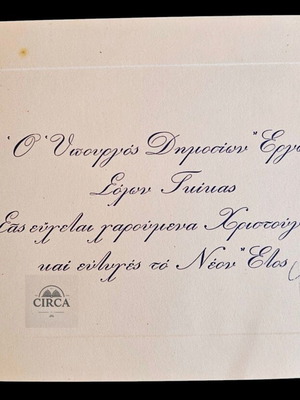 Ὁ Ὑπουργός Δημοσίων Ἔργω
Σόλων Γκίκας
Σᾶς εὔχεται χαρούμενα Χριστούγ
καί εὐτυχές τό Νέον Ἔτος
CIRCA